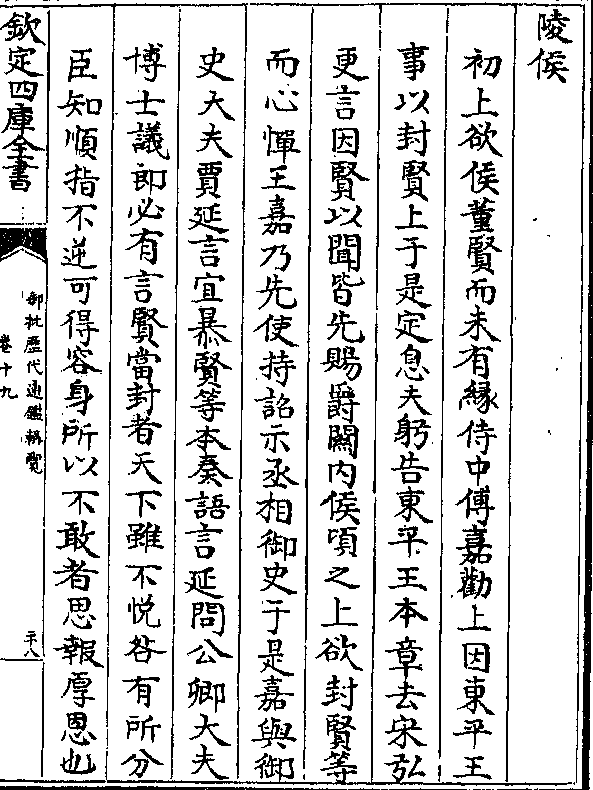 陵侯
初上欲侯董賢而未有緣侍中傅嘉勸上因東平王
事以封賢上于是定息夫躬告東平王本章去宋弘
更言因賢以聞皆先賜爵關内侯頃之上欲封賢等
而心憚王嘉乃先使持詔示丞相御史于是嘉與御
史大夫賈延言宜暴賢等本奏語言延問公卿大夫
博士議即必有言賢當封者天下雖不悦咎有所分
臣知順指不逆可得容身所以不敢者思報厚恩也
欽定四庫全書
御批歷代通鑑輯覽
卷十九